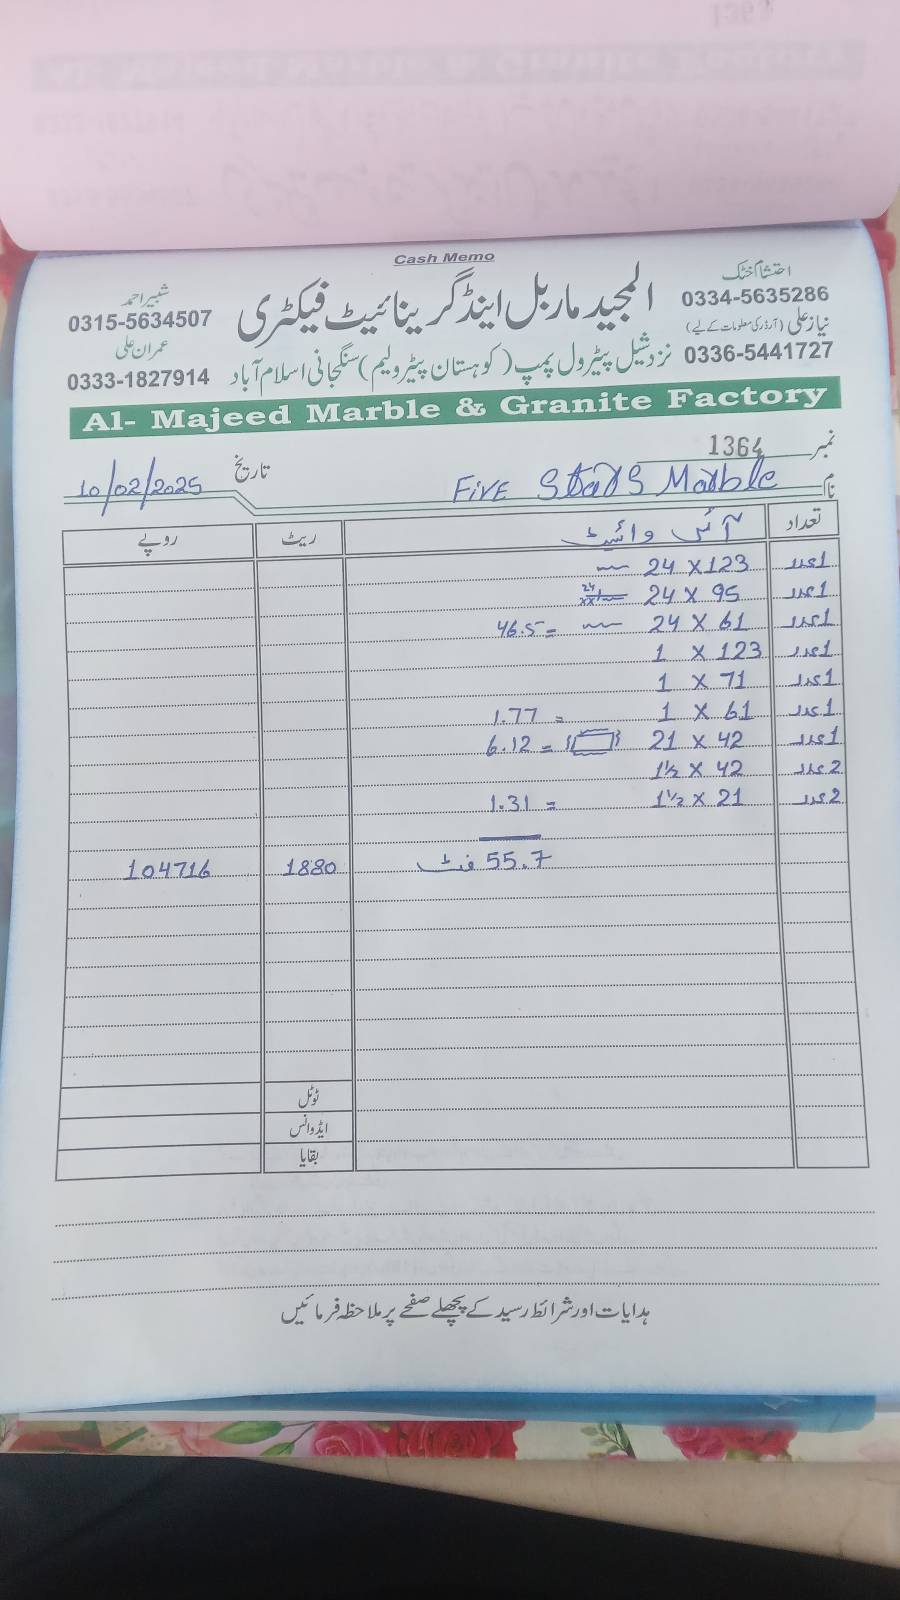 Cash Memo
احتشام خٹک
0334-5635286
المجید ماربل اینڈ گرینائیٹ فیکٹری
شبیر احمد
0315-5634507
نیاز علی (آرڈر کی معلومات کے لیے)
0336-5441727
نزد شیل پیٹرول پمپ (کوہستان پیٹرولیم) سنگجانی اسلام آباد
عمران علی
0333-1827914
Al- Majeed Marble & Granite Factory
نمبر 1364
نام Five Stars Marble
تاریخ 10/02/2025
تعداد آئس وائیٹ ریٹ روپے
1عدد 24 X 123
1عدد 24 X 95
1عدد 24 X 61 = 46.5
1عدد 1 X 123
1عدد 1 X 71
1عدد 1 X 61 = 1.77
1عدد 21 X 42 = 6.12
2عدد 1½ X 42
2عدد 1½ X 21 = 1.31
55.7 فٹ 1880 104716
ٹوٹل
ایڈوانس
بقایا
ہدایات اور شرائط رسید کے پچھلے صفحے پر ملاحظہ فرمائیں